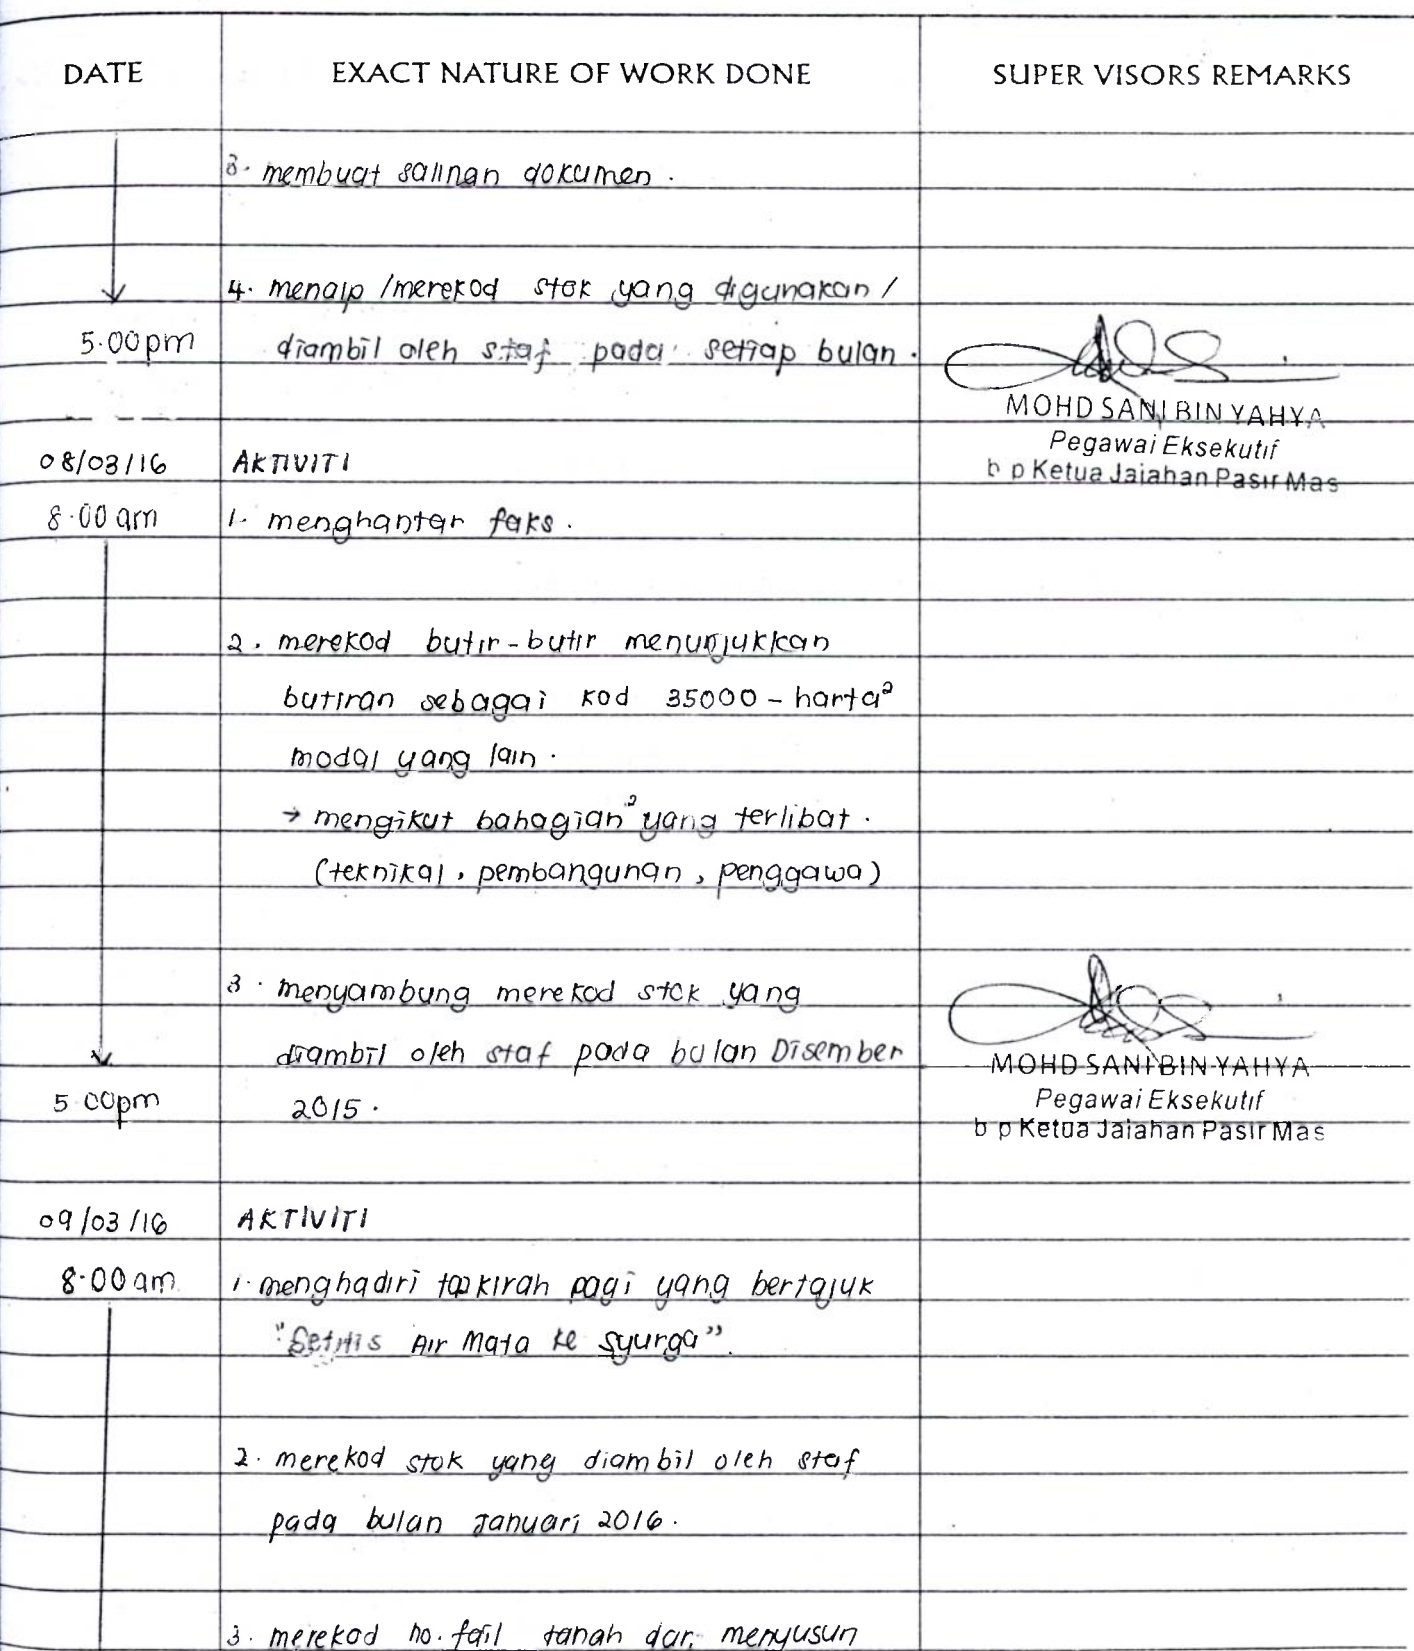 DATE EXACT NATURE OF WORK DONE SUPER VISORS REMARKS
3. membuat salinan dokumen.
4. menaip /merekod stok yang digunakan /
5.00pm diambil oleh staf pada setiap bulan.
MOHD SANI BIN YAHYA
Pegawai Eksekutif
b p Ketua Jajahan Pasir Mas
08/03/16 AKTIVITI
8.00 am 1. menghantar faks.
2. merekod butir-butir menunjukkan
butiran sebagai kod 35000 - harta²
modal yang lain.
→ mengikut bahagian² yang terlibat.
(teknikal, pembangunan, penggawa)
3. menyambung merekod stok yang
diambil oleh staf pada bulan Disember
5 00pm 2015.
MOHD SANI BIN YAHYA
Pegawai Eksekutif
b p Ketua Jajahan Pasir Mas
09/03/16 AKTIVITI
8.00 am 1. menghadiri tazkirah pagi yang bertajuk
"Setitis Air Mata ke Syurga".
2. merekod stok yang diambil oleh staf
pada bulan Januari 2016.
3. merekod no. fail tanah dan menyusun